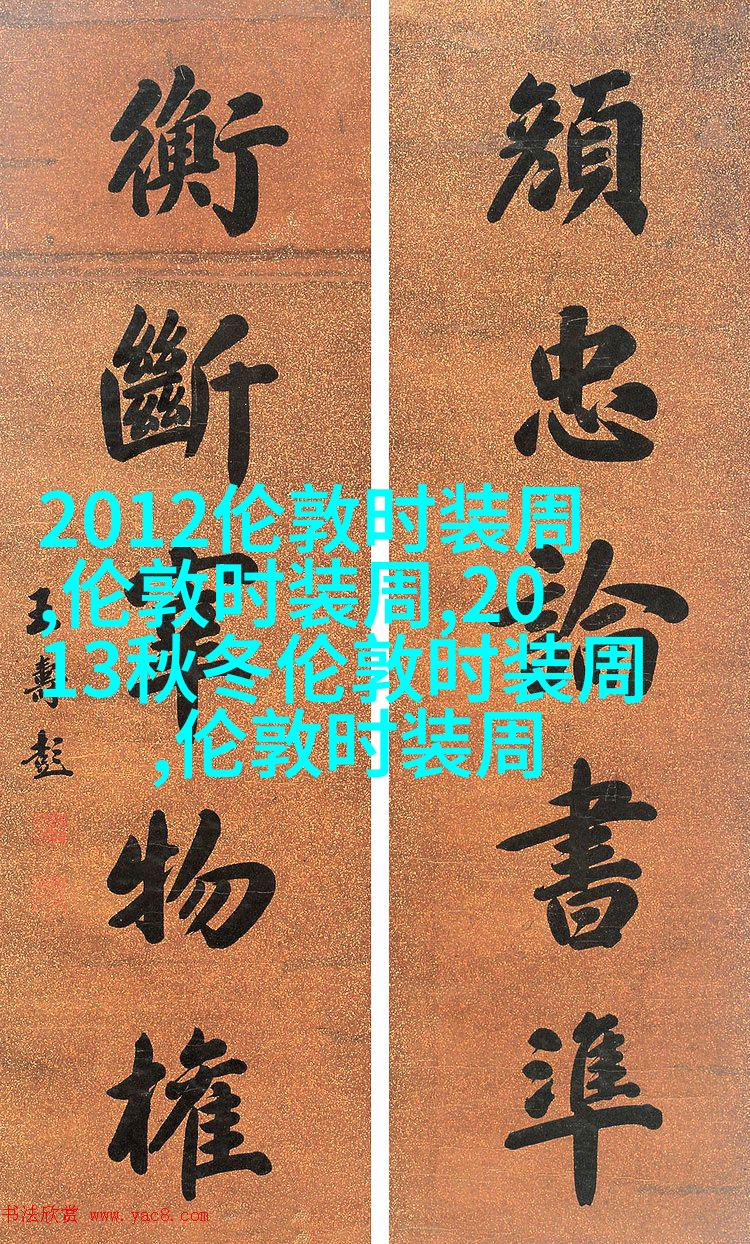 忠
論
書
準
衡
斷
物
權
王壽彭
2012伦敦时装周
,伦敦时装周,20
13秋冬伦敦时装周
,伦敦时装周
书法欣赏 www.yac8.com